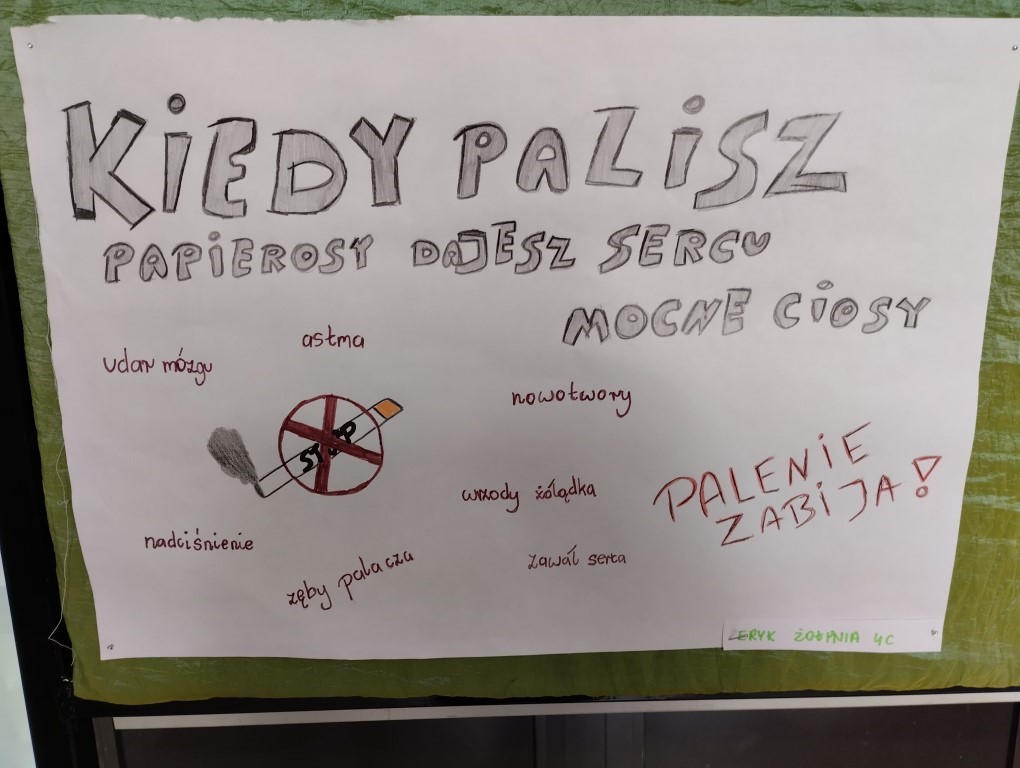 KiEDY PALiSZ
PAPiEROSY DAJESZ SERCU
MOCNE CiOSY
astma
udar mózgu
nowotwory
STOP
wrzody żołądka
PALENiE
ZABiJA!
nadciśnienie
zawał serca
zęby palacza
ERYK ŻOŁPNIA 4C